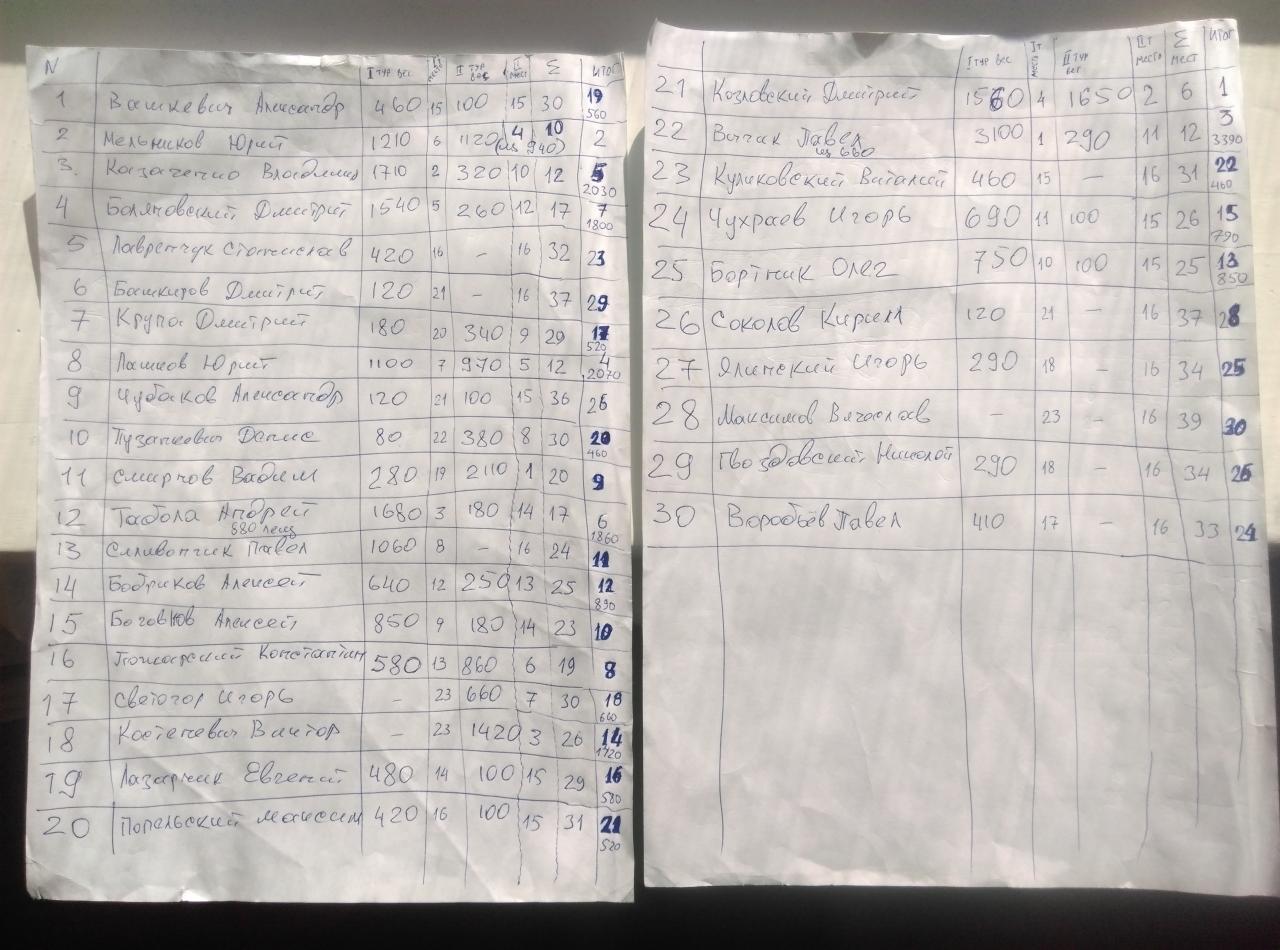 N I тур вес I т место II тур вес II т мест Σ итог
1 Вашкевич Александр 460 15 100 15 30 19 560
2 Мельников Юрий 1210 6 1120 (лещ 940) 4 10 2
3. Казаченко Владимир 1710 2 320 10 12 5 2030
4 Боляновский Дмитрий 1540 5 260 12 17 7 1800
5 Лавренчук Станислав 420 16 – 16 32 23
6 Башкиров Дмитрий 120 21 – 16 37 29
7 Крупа Дмитрий 180 20 340 9 29 17 520
8 Лашков Юрий 1100 7 970 5 12 4 2070
9 Чубаков Александр 120 21 100 15 36 26
10 Пузанкевич Денис 80 22 380 8 30 20 460
11 Смирнов Вадим 280 19 2110 1 20 9
12 Табола Андрей 1680 3 180 14 17 6 1860
680 лещ
13 Сливончик Павел 1060 8 – 16 24 11
14 Бобриков Алексей 640 12 250 13 25 12 890
15 Боговков Алексей 850 9 180 14 23 10
16 Пожарский Константин 580 13 860 6 19 8
17 Светогор Игорь – 23 660 7 30 18 660
18 Костеневич Виктор – 23 1420 3 26 14 1420
19 Лазарчик Евгений 480 14 100 15 29 16 580
20 Попельский Максим 420 16 100 15 31 21 520
I тур вес I т место II тур вес II т место Σ мест итог
21 Козловский Дмитрий 1560 4 1650 2 6 1
22 Вончик Павел 3100 1 290 11 12 3 3390
лещ 660
23 Куликовский Виталий 460 15 – 16 31 22 460
24 Чухраев Игорь 690 11 100 15 26 15 790
25 Бортник Олег 750 10 100 15 25 13 850
26 Соколов Кирилл 120 21 – 16 37 28
27 Ялинский Игорь 290 18 – 16 34 25
28 Максимов Вячеслав – 23 – 16 39 30
29 Гвоздовский Николай 290 18 – 16 34 26
30 Воробьёв Павел 410 17 – 16 33 24